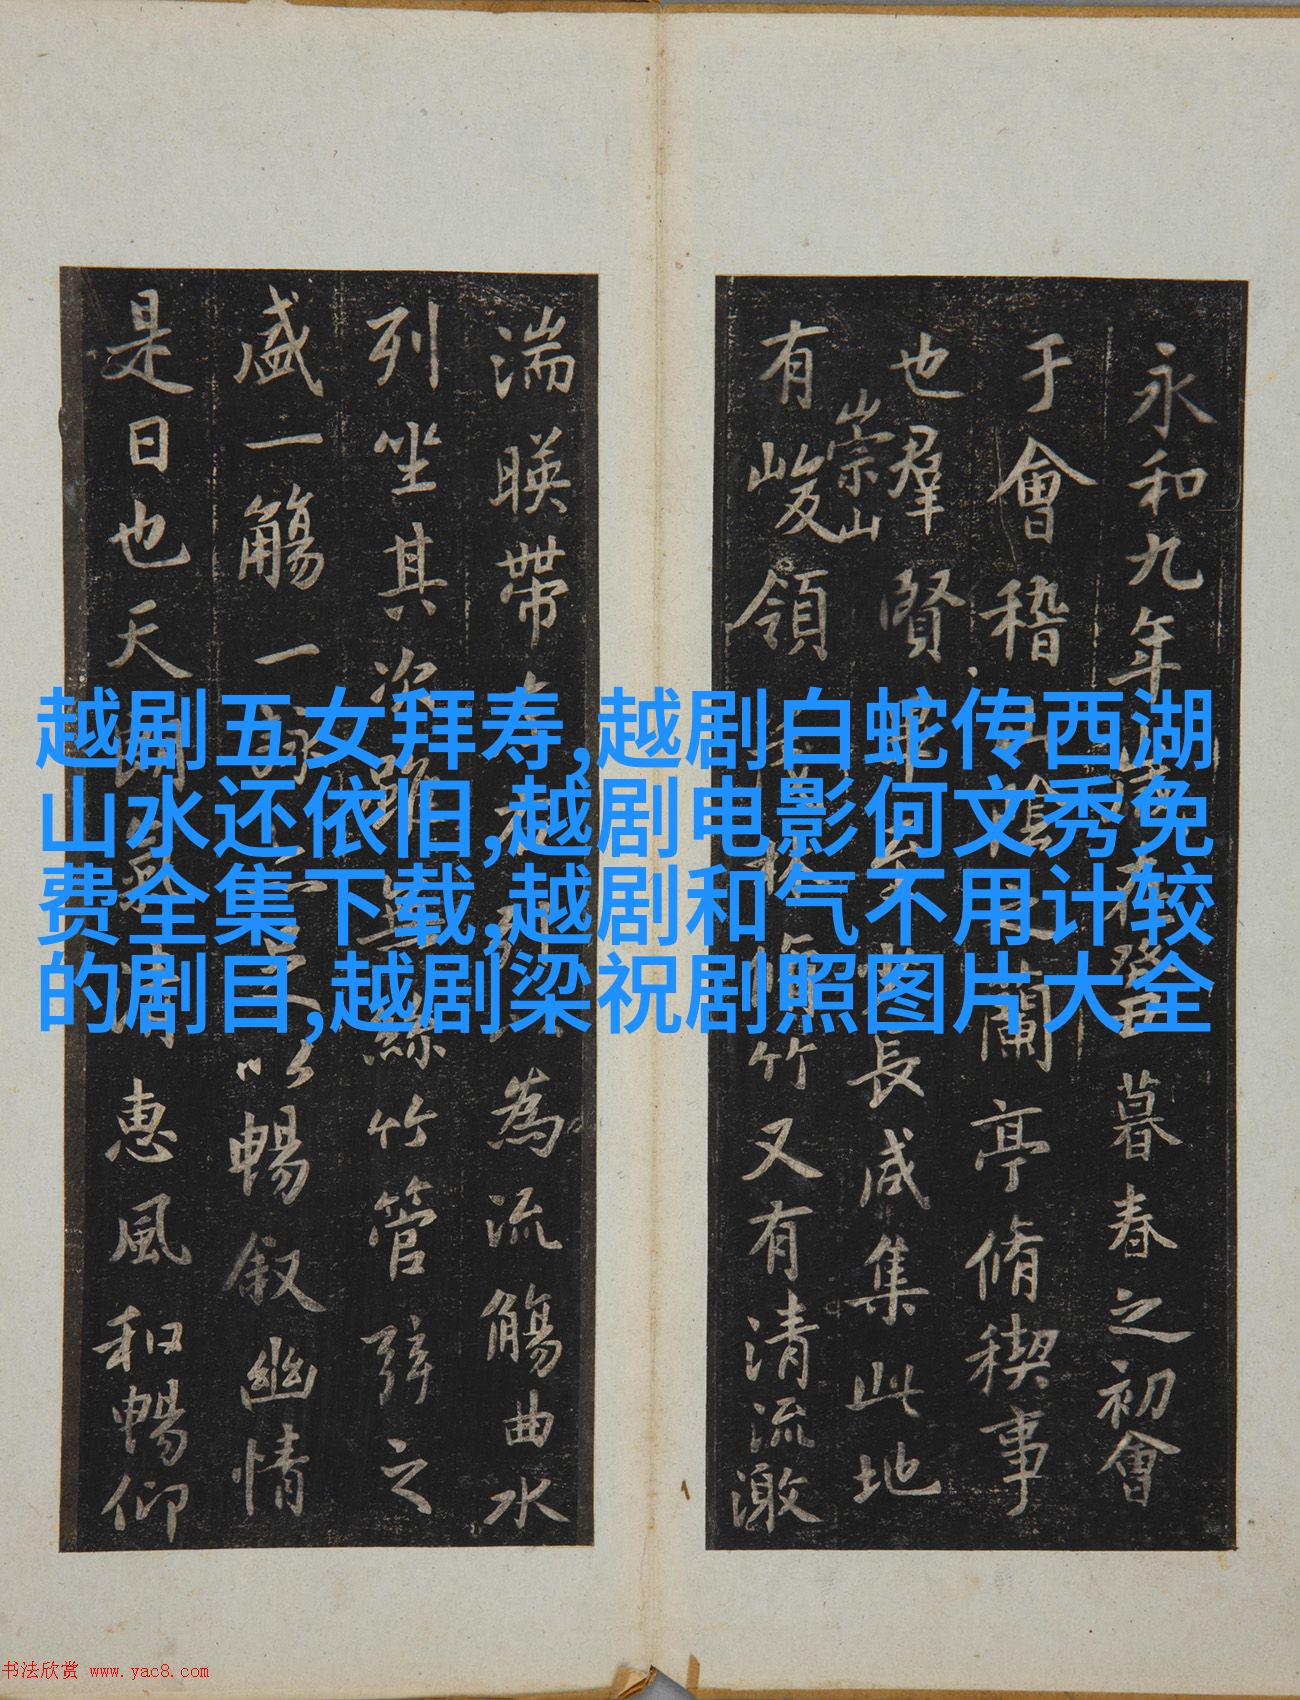 越剧五女拜寿,越剧白蛇传西湖
山水还依旧,越剧电影何文秀免
费全集下载,越剧和气不用计较
的剧目,越剧梁祝剧照图片大全
永和九年暮春之初會
于會稽蘭亭脩禊事
也羣賢長咸集此地
有崇山峻領竹又有清流激
湍暎帶為流觴曲水
列坐其次絲竹管弦之
盛一觴一以暢叙幽情
是日也天惠風和暢仰
书法欣赏 www.yac8.com